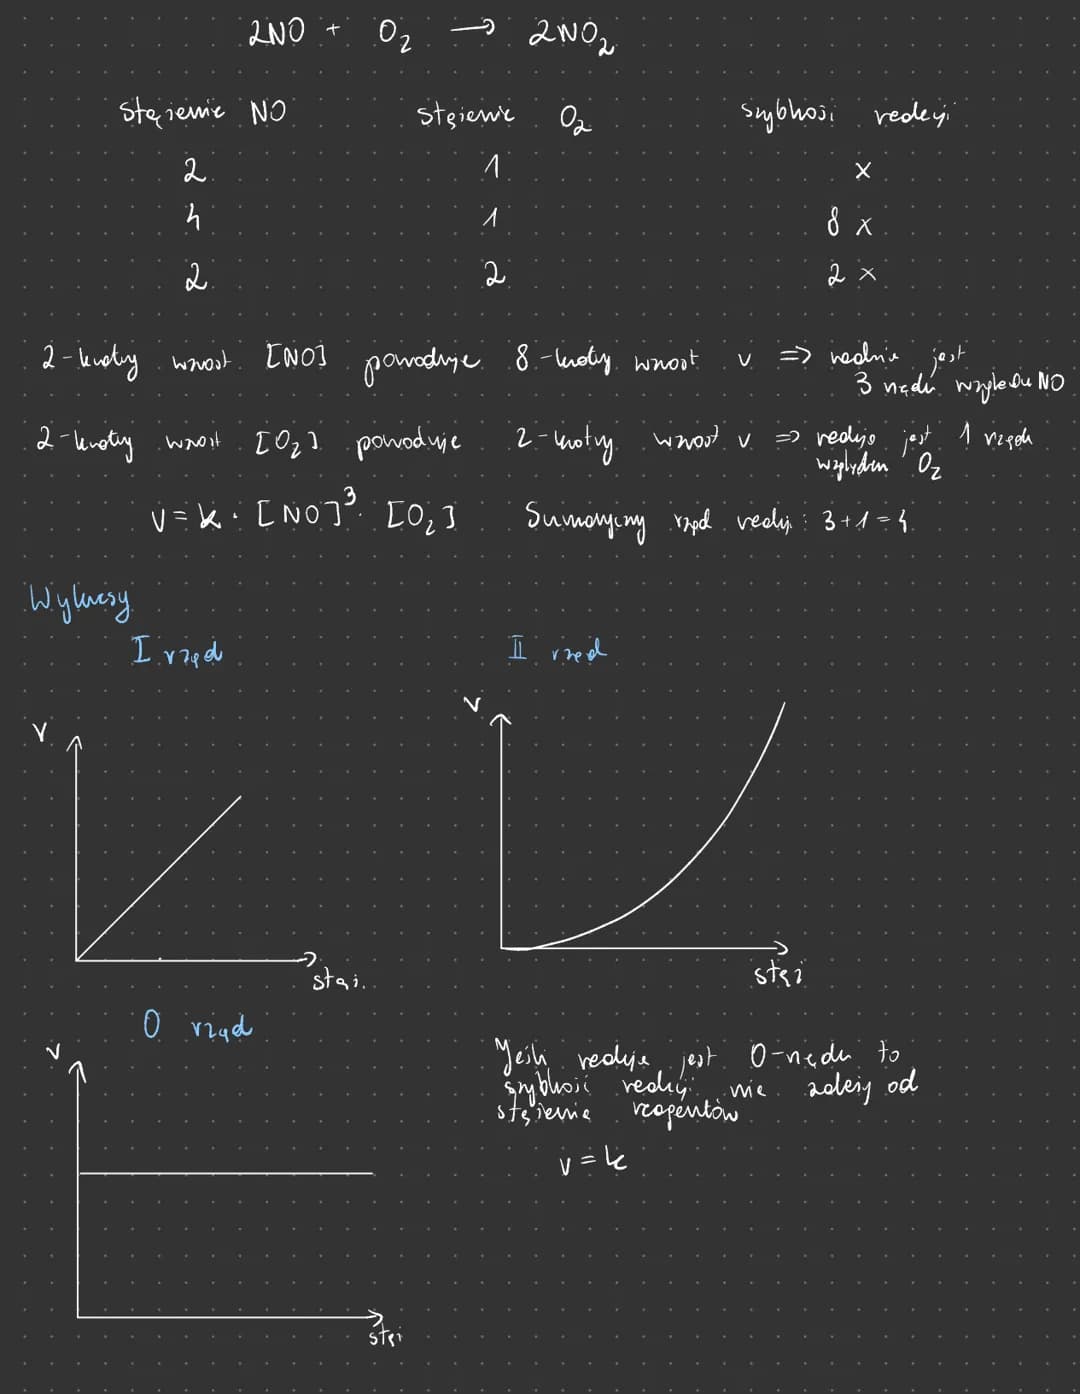 2NO + O₂ → 2NO₂
stężenie NO stężenie O₂ szybkość reakcji
2 1 x
4 1 8 x
2 2 2 x
2-krotny wzrost [NO] powoduje 8-krotny wzrost v => reakcja jest
3 rzędu względem NO
2-krotny wzrost [O₂] powoduje 2-krotny wzrost v => reakcja jest 1 rzędu
względem O₂
v = k · [NO]³ · [O₂] Sumaryczny rząd reakcji : 3+1=4
Wykresy
I rząd II rząd
v v
stęż. stęż
0 rząd
v
Jeśli reakcja jest 0-rzędu to
szybkość reakcji nie zależy od
stężenia reagentów
v = k
stęż